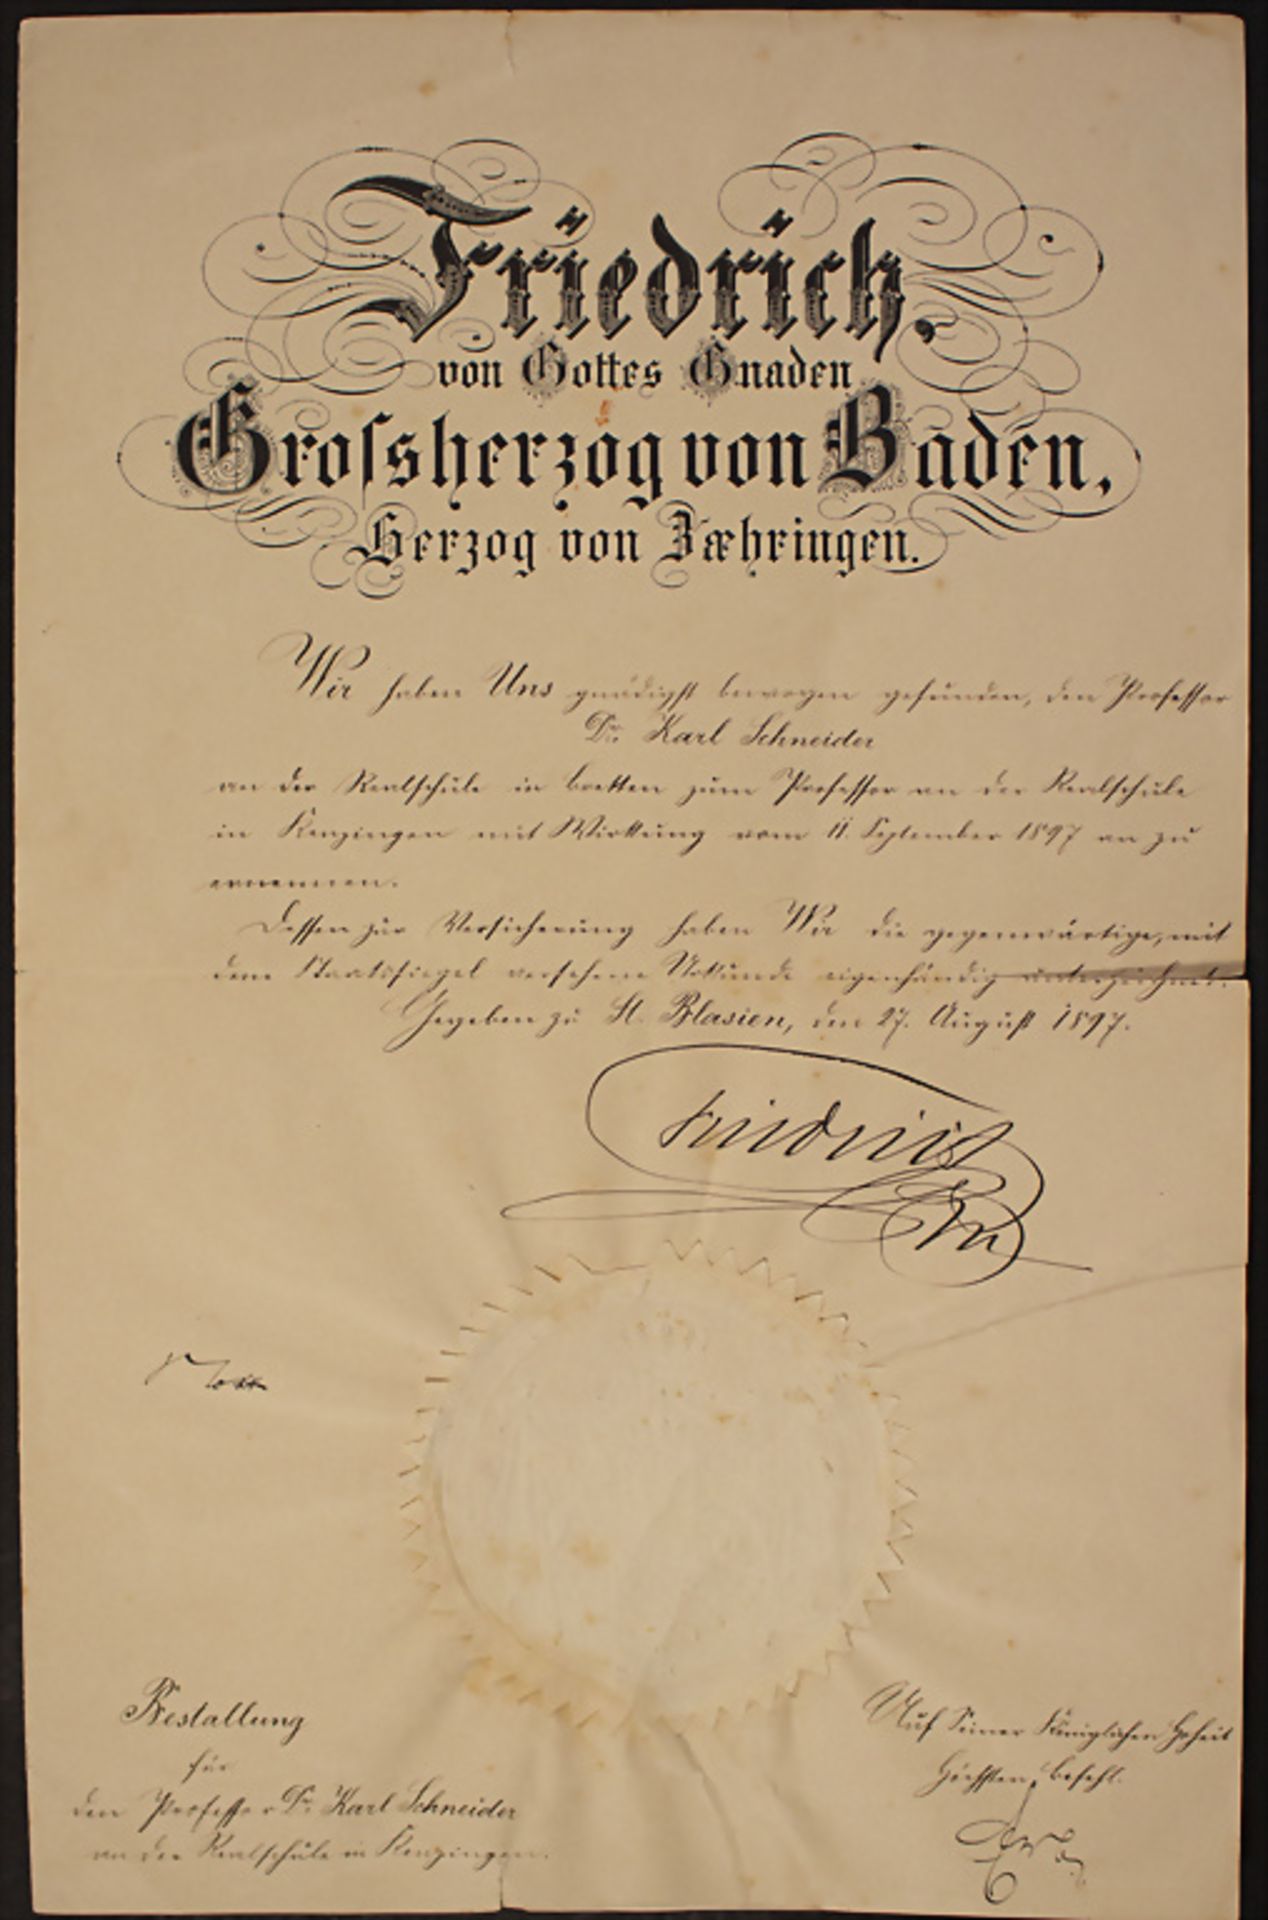 Friedrich,
von Gottes Gnaden
Grossherzog von Baden,
Herzog von Zæhringen.
Wir haben Uns gnädigst bewogen gefunden, den Professor
Dr. Karl Schneider
an der Realschule in Bretten zum Professor an der Realschule
in Kenzingen mit Wirkung vom 11. September 1897 an zu
ernennen.
Dessen zur Versicherung haben Wir die gegenwärtige, mit
dem Staatssiegel versehene Urkunde eigenhändig unterzeichnet.
Gegeben zu St. Blasien, den 27. August 1897.
Friedrich
Bestallung
für
den Professor Dr. Karl Schneider
an der Realschule in Kenzingen.
Auf Seiner Königlichen Hoheit
höchsten Befehl.